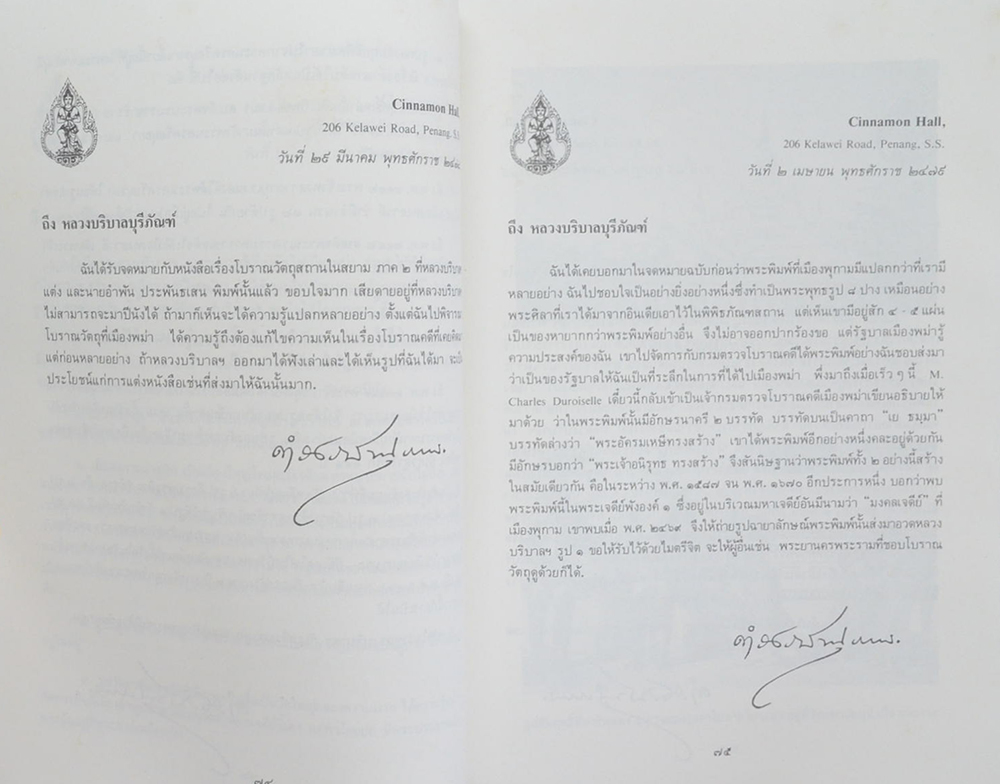 Cinnamon Hal
206 Kelawei Road, Penang, S.S.
วันที่ ๒๙ มีนาคม พุทธศักราช
ถึง หลวงบริบาลบุรีภัณฑ์
ฉันได้รับจดหมายกับหนังสือเรื่องโบราณวัตถุสถานในสยาม ภาค ๒ ที่หลวงบริบาล
แต่ง และนายอำพัน ประพันธเสน พิมพ์นั้นแล้ว ขอบใจมาก เสียดายอยู่ที่หลวงบริบาล
ไม่สามารถจะมาปีนังได้ ถ้ามาก็เห็นจะได้ความรู้แปลกหลายอย่าง ตั้งแต่ฉันไปพิจารณา
โบราณวัตถุที่เมืองพม่า ได้ความรู้ถึงต้องแก้ไขความเห็นในเรื่องโบราณคดีที่เคยคิด
แต่ก่อนหลายอย่าง ถ้าหลวงบริบาลฯ ออกมาได้ฟังเล่าและได้เห็นรูปที่ฉันได้มา
ประโยชน์แก่การแต่งหนังสือเช่นที่ส่งมาให้ฉันนั้นมาก.
๗๔
Cinnamon Hall,
206 Kelawei Road, Penang, S.S.
วันที่ ๒ เมษายน พุทธศักราช ๒๔๗๙
ถึง หลวงบริบาลบุรีภัณฑ์
ฉันได้เคยบอกมาในจดหมายฉบับก่อนว่าพระพิมพ์ที่เมืองพุกามมีแปลกกว่าที่เรามี
หลายอย่าง ฉันไปชอบใจเป็นอย่างยิ่งอย่างหนึ่งซึ่งทำเป็นพระพุทธรูป ๘ ปาง เหมือนอย่าง
พระศิลาที่เราได้มาจากอินเดียเอาไว้ในพิพิธภัณฑสถาน แต่เห็นเขามีอยู่สัก ๔ - ๕ แผ่น
เป็นของหายากกว่าพระพิมพ์อย่างอื่น จึงไม่อาจออกปากร้องขอ แต่รัฐบาลเมืองพม่ารู้
ความประสงค์ของฉัน เขาไปจัดการกับกรมตรวจโบราณคดีได้พระพิมพ์อย่างฉันชอบส่งมา
ว่าเป็นของรัฐบาลให้ฉันเป็นที่ระลึกในการที่ได้ไปเมืองพม่า พึ่งมาถึงเมื่อเร็ว ๆ นี้ M.
Charles Duroiselle เดี๋ยวนี้กลับเข้าเป็นเจ้ากรมตรวจโบราณคดีเมืองพม่าเขียนอธิบายให้
มาด้วย ว่าในพระพิมพ์นั้นมีอักษรนาครี ๒ บรรทัด บรรทัดบนเป็นคาถา “เย ธมฺมา”
บรรทัดล่างว่า “พระอัครมเหษีทรงสร้าง” เขาได้พระพิมพ์อีกอย่างหนึ่งคละอยู่ด้วยกัน
มีอักษรบอกว่า “พระเจ้าอนิรุทธ ทรงสร้าง” จึงสันนิษฐานว่าพระพิมพ์ทั้ง ๒ อย่างนี้สร้าง
ในสมัยเดียวกัน คือในระหว่าง พ.ศ. ๑๕๘๗ จน พ.ศ. ๑๖๗๐ อีกประการหนึ่ง บอกว่าพบ
พระพิมพ์นี้ในพระเจดีย์พังองค์ ๑ ซึ่งอยู่ในบริเวณมหาเจดีย์อันมีนามว่า “มงคลเจดีย์” ที่
เมืองพุกาม เขาพบเมื่อ พ.ศ. ๒๔๖๙ จึงให้ถ่ายรูปฉายาลักษณ์พระพิมพ์นั้นส่งมาอวดหลวง
บริบาลฯ รูป ๑ ขอให้รับไว้ด้วยไมตรีจิต จะให้ผู้อื่นเช่น พระยานครพระรามที่ชอบโบราณ
วัตถุดูด้วยก็ได้.
๗๕